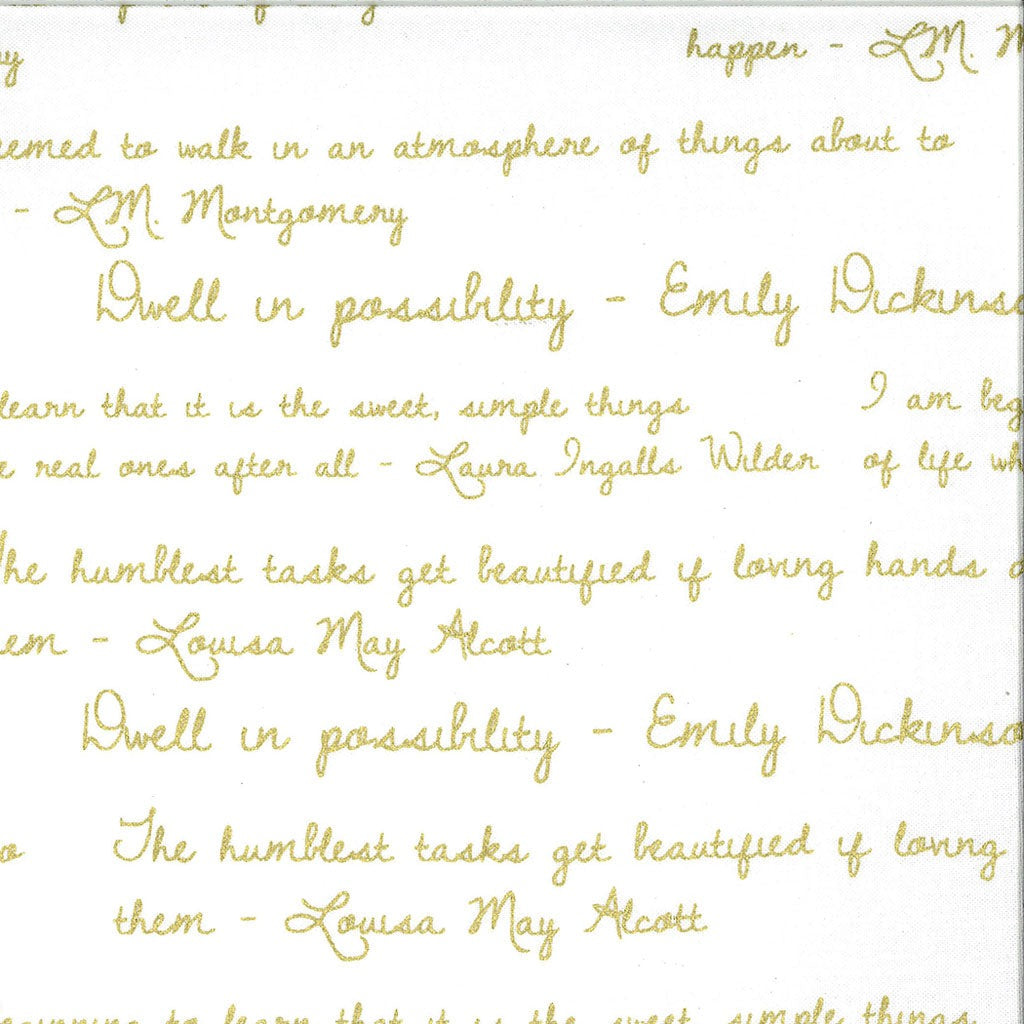 happen - L.M.
eemed to walk in an atmosphere of things about to
- L.M. Montgomery
Dwell in possibility - Emily Dickinso
learn that it is the sweet, simple things
I am beg
e real ones after all - Laura Ingalls Wilder
of life wh
The humblest tasks get beautified if loving hands
em - Louisa May Alcott
Dwell in possibility - Emily Dickinso
o
The humblest tasks get beautified if loving
them - Louisa May Alcott
eginning to learn that it is the sweet, simple things